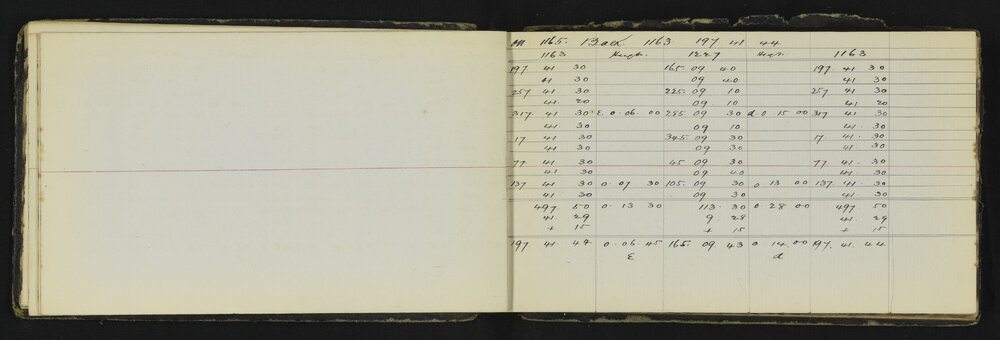 on 1165. Back 1163 197 41 44
1163 Height. 1227 Height 1163
197 41 30 165. 09 40 197 41 30
41 30 09 40 41 30
257 41 30 225. 09 10 257 41 30
41 20 09 10 41 20
317 41 30 E. 0. 06 00 285. 09 30 d. 0. 15 00 317 41. 30
41 30 09 10 41. 30
17 41 30 345. 09 30 17. 41. 30
41 30 09 30 41. 30
77 41 30 45 09 30 77. 41. 30
41 30 09 40 41. 30
137 41 30 0. 07 30 105. 09 30 0 13 00 137. 41. 30
41. 30 09 30 41 30
497 50 0. 13 30 113. 30 0 28 00 497 50
41. 29 9. 28 41. 29
+ 15 + 15 + 15
197 41 44 0. 06. 45 165. 09. 43 0 14. 00 197. 41. 44
E d